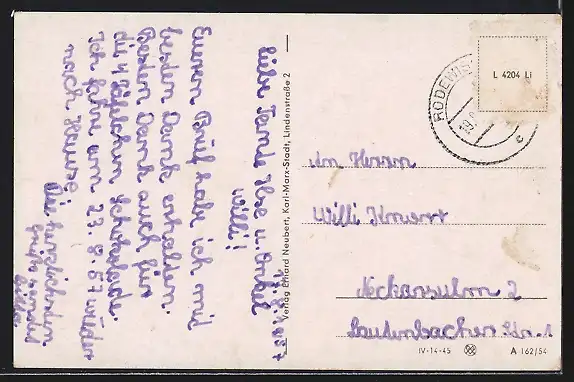 17.8.1957
Liebe Tante Ilse u. Onkel
Willi!
Euern Brief habe ich mit
besten Dank erhalten.
Besten Dank auch für
die 4 Täfelchen Schokolade.
Ich fahre am 23.8.57 wieder
nach Hause.
Die herzlichsten
Grüße sendet
Verlag Erhard Neubert, Karl-Marx-Stadt, Lindenstraße 2
RODEWIS
L 4204 Li
An Herrn
Willi Knerr
Neckarsulm 2
Lautenbacher Str. 1
IV-14-45 A 162/54